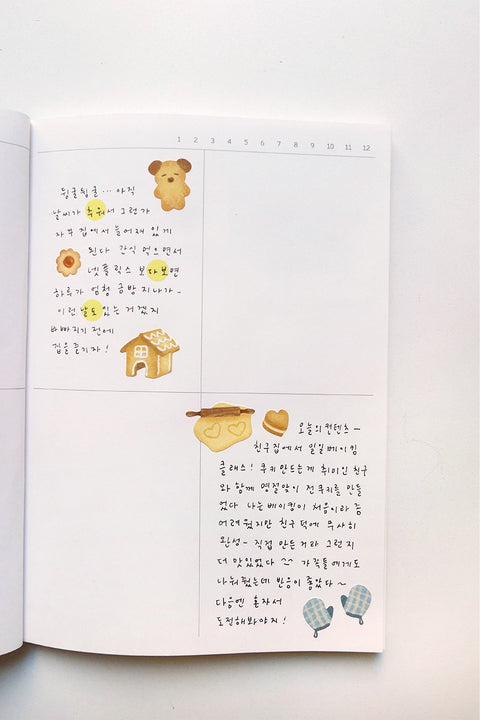 1 2 3 4 5 6 7 8 9 10 11 12
뒹굴뒹굴… 아직
날씨가 추워서 그런가
자꾸 집에서 늘어져 있게
된다 간식 먹으면서
넷플릭스 보다보면
하루가 엄청 금방 지나가~
이런 날도 있는 거겠지
바빠지기 전에
집을 즐기자!
오늘의 컨텐츠 —
친구집에서 일일베이킹
클래스! 쿠키 만드는게 취미인 친구
와 함께 명절맞이 전쿠키를 만들
었다 나는 베이킹이 처음이라 좀
어려웠지만 친구 덕에 무사히
완성~ 직접 만든거라 그런지
더 맛있었다 ^^ 가족들에게도
나눠줬는데 반응이 좋았다~
다음엔 혼자서
도전해봐야지!